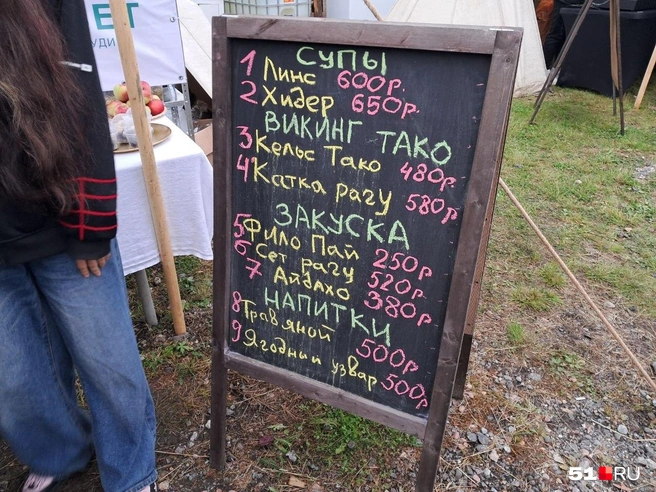 ЕТ
СУПЫ
1 Линс 600р.
2 Хидер 650р.
ВИКИНГ ТАКО
3 Кельс Тако 480р.
4 Катка рагу 580р
ЗАКУСКА
5 Фило Пай 250р
6 Сет рагу 520р
7 Айдахо 380р
НАПИТКИ
8 Травяной 500р
9 Ягодный узвар 500р
51.RU